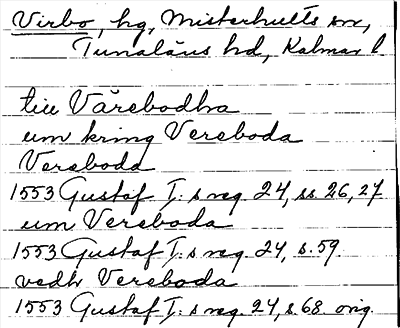 Virbo, hg, Misterhults sn,
Tunaläns hd, Kalmar l.
till Vårebodha
um kring Vereboda
Vereboda
1553 Gustaf I:s reg. 24, ss. 26, 27
um Vereboda
1553 Gustaf I:s reg. 24, s. 59.
vedh Vereboda
1553 Gustaf I:s reg. 24, s. 68. orig.